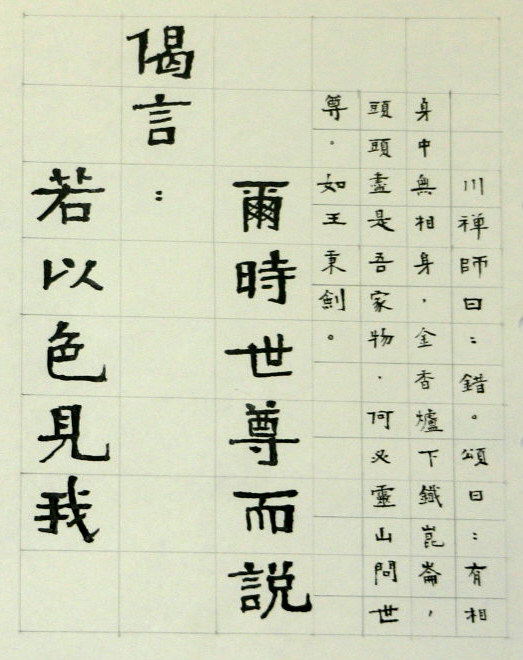 川禅師曰：錯。頌曰：有相
身中無相身，金香爐下鐵崑崙，
頭頭盡是吾家物．何必靈山問世
尊．如王秉劍。
爾時世尊而說
偈言：
若以色見我